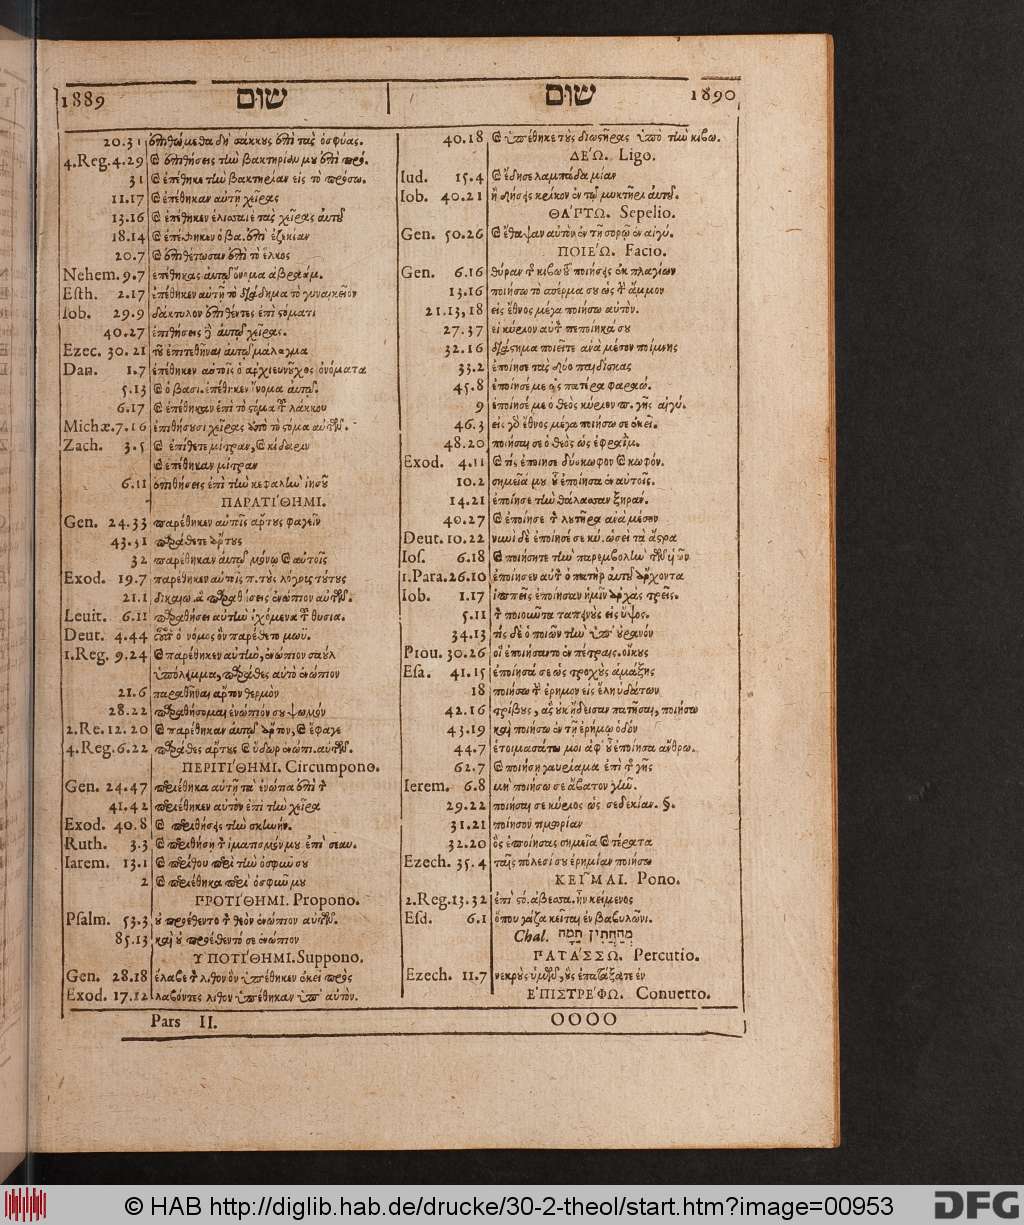 1889 שום
20.31 ἐπιθώμεθα δὴ σάκκους ἐπὶ τὰς ὀσφύας.
4.Reg.4.29 καὶ ἐπιθήσεις τὴν βακτηρίαν μου ἐπὶ πρός.
31 καὶ ἐπέθηκε τὴν βακτηρίαν εἰς τὸ πρόσω.
11.17 καὶ ἐπέθηκαν αὐτῇ χεῖρας
13.16 καὶ ἐπέθηκεν ἐλισσαιὲ τὰς χεῖρας αὐτοῦ
18.14 καὶ ἐπέθηκεν ὁ βα. ἐπὶ ἐζεκίαν
20.7 καὶ ἐπιθέτωσαν ἐπὶ τὸ ἕλκος
Nehem. 9.7 ἐπέθηκας αὐτῷ ὄνομα ἀβραάμ.
Esth. 2.17 ἐπέθηκεν αὐτῇ τὸ διάδημα τὸ γυναικεῖον
Iob. 29.9 δάκτυλον ἐπιθέντες ἐπὶ στόματι
40.27 ἐπιθήσεις αὐτῷ χεῖρας.
Ezec. 30.21 τοῦ ἐπιτεθῆναι αὐτῷ μάλαγμα
Dan. 1.7 ἐπέθηκεν αὐτοῖς ὁ ἀρχιευνοῦχος ὀνόματα
5.13 καὶ ὁ βασι. ἐπέθηκεν ὄνομα αὐτῷ.
6.17 καὶ ἐπέθηκαν ἐπὶ τὸ στόμα τοῦ λάκκου
Michæ.7.16 ἐπιθήσουσι χεῖρας ἐπὶ τὸ στόμα αὐτῶν.
Zach. 3.5 καὶ ἐπίθετε μίτραν, καὶ κίδαριν
καὶ ἐπέθηκαν μίτραν
6.11 ἐπιθήσεις ἐπὶ τὴν κεφαλὴν ἰησοῦ
ΠΑΡΑΤΙΘΗΜΙ.
Gen. 24.33 παρέθηκεν αὐτοῖς ἄρτους φαγεῖν
43.31 παράθετε ἄρτους
32 παρέθηκαν αὐτῷ μόνῳ καὶ αὐτοῖς
Exod. 19.7 παρέθηκεν αὐτοῖς π. τοὺς λόγους τούτους
21.1 δικαιώ. ἃ παραθήσεις ἐνώπιον αὐτῶν.
Leuit. 6.11 παραθήσει αὐτὴν ἐχόμενα τοῦ θυσια.
Deut. 4.44 ὁ νόμος ὃν παρέθετο μωϋ.
1.Reg. 9.24 καὶ παρέθηκεν αὐτὴν, ἐνώπιον σαοὺλ
ὑπόλειμμα, παράθες αὐτὸ ἐνώπιον
21.6 παραθῆναι ἄρτον θερμὸν
28.22 παραθήσομαι ἐνώπιόν σου ψωμὸν
2.Re.12.20 καὶ παρέθηκαν αὐτῷ ἄρτον, καὶ ἔφαγε
4.Reg.6.22 παράθες ἄρτους καὶ ὕδωρ ἐνώπι. αὐτῶν.
ΠΕΡΙΤΙΘΗΜΙ. Circumpono.
Gen. 24.47 περιέθηκα αὐτῇ τὰ ἐνώτια
41.42 περιέθηκεν αὐτὸν ἐπὶ τὴν χεῖρα
Exod. 40.8 καὶ περιθήσεις τὴν σκηνήν.
Ruth. 3.3 καὶ περιθήσῃ τὸν ἱματισμόν σου ἐπὶ σεαυ.
Iarem. 13.1 καὶ περίθου περὶ τὴν ὀσφύν σου
2 καὶ περιέθηκα περὶ ὀσφύν μου
ΠΡΟΤΙΘΗΜΙ. Propono.
Psalm. 53.3 οὐ προέθεντο τὸν θεὸν ἐνώπιον αὐτῶν.
85.13 καὶ οὐ προέθεντό σε ἐνώπιον
ΥΠΟΤΙΘΗΜΙ. Suppono.
Gen. 28.18 ἔλαβε τὸν λίθον ὃν ὑπέθηκεν ἐκεῖ πρὸς
Exod. 17.12 λαβόντες λίθον ὑπέθηκαν ὑπ' αὐτὸν.
Pars II.
שום 1890
40.18 καὶ ὑπέθηκε τοὺς διωστῆρας ὑπὸ τὴν κιβω.
ΔΕΩ. Ligo.
Iud. 15.4 καὶ ἔδησε λαμπάδα μίαν
Iob. 40.21 ἢ δήσεις κρίκον ἐν τῷ μυκτῆρι αὐτοῦ.
ΘΑΠΤΩ. Sepelio.
Gen. 50.26 καὶ ἔθαψαν αὐτὸν ἐν τῇ σορῷ ἐν αἰγύ.
ΠΟΙΕΩ. Facio.
Gen. 6.16 θύραν τῆς κιβωτοῦ ποιήσεις ἐκ πλαγίων
13.16 ποιήσω τὸ σπέρμα σου ὡς τὴν ἄμμον
21.13,18 εἰς ἔθνος μέγα ποιήσω αὐτὸν.
27.37 εἰ κύριον αὐτὸν πεποίηκά σου
32.16 διάστημα ποιεῖτε ἀνὰ μέσον ποίμνης
33.2 ἐποίησε τὰς δύο παιδίσκας
45.8 ἐποίησέ με ὡς πατέρα φαραώ.
9 ἐποίησέ με ὁ θεὸς κύριον π. γῆς αἰγύ.
46.3 εἰς γὰρ ἔθνος μέγα ποιήσω σε ἐκεῖ.
48.20 ποιήσαι σε ὁ θεὸς ὡς ἐφραΐμ.
Exod. 4.11 καὶ τίς ἐποίησε δύσκωφον καὶ κωφόν.
10.2 σημεῖά μου ἃ ἐποίησα ἐν αὐτοῖς.
14.21 ἐποίησε τὴν θάλασσαν ξηραν.
40.27 καὶ ἐποίησε τὸν λουτῆρα ἀνὰ μέσον
Deut.10.22 νυνὶ δὲ ἐποίησέ σε κύ. ὡσεὶ τὰ ἄστρα
Ios. 6.18 καὶ ποιήσητε τὴν παρεμβολὴν τῶν υἱῶν
1.Para.26.10 ἐποίησεν αὐτὸν ὁ πατὴρ αὐτοῦ ἄρχοντα
Iob. 1.17 ἱππεῖς ἐποίησαν ἡμῖν ἀρχὰς τρεῖς.
5.11 τὸν ποιοῦντα ταπεινοὺς εἰς ὕψος.
34.13 τίς δέ ὁ ποιῶν τὴν ὑπ' οὐρανόν
Prou. 30.26 οἳ ἐποιήσαντο ἐν πέτραις. οἴκους
Esa. 41.15 ἐποίησά σε ὡς τροχοὺς ἁμάξης
18 ποιήσω τὴν ἔρημον εἰς ἕλη ὑδάτων
42.16 τρίβους, ἃς οὐκ ᾔδεισαν πατῆσαι, ποιήσω
43.19 καὶ ποιήσω ἐν τῇ ἐρήμῳ ὁδὸν
44.7 ἑτοιμασάτω μοι ἀφ' οὗ ἐποίησα ἄνθρω.
62.7 καὶ ποιήσῃ γαυρίαμα ἐπὶ τῆς γῆς
Ierem. 6.8 μὴ ποιήσω σε ἄβατον γῆν.
29.22 ποιήσαι σε κύριος ὡς σεδεκίαν. §.
31.21 ποίησον τιμωρίαν
32.20 ὃς ἐποίησας σημεῖα καὶ τέρατα
Ezech. 35.4 ταῖς πόλεσί σου ἐρημίαν ποιήσω
ΚΕΙΜΑΙ. Pono.
2.Reg.13.32 ἐπὶ στό. ἀβεσσα. ἦν κείμενος
Esd. 6.1 ὅπου γάζα κεῖται ἐν βαβυλῶνι.
Chal. מְהַחֲתִין תַּמָּה
ΠΑΤΑΣΣΩ. Percutio.
Ezech. 11.7 νεκροὺς ὑμῶν, οὓς ἐπατάξατε ἐν
ΕΠΙΣΤΡΕΦΩ. Conuerto.
OOOO
© HAB http://diglib.hab.de/drucke/30-2-theol/start.htm?image=00953
DFG